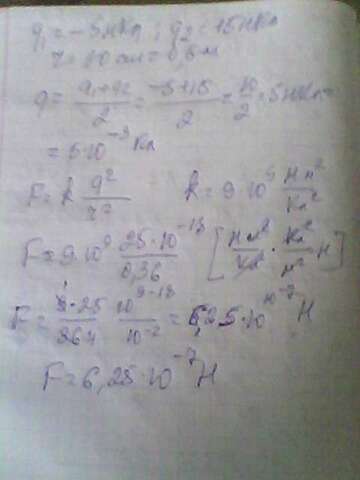 q₁ = -5 нКл ; q₂ = 15 нКл
r = 60 см = 0,6 м
q = (q₁+q₂)/2 = (-5+15)/2 = 10/2 = 5 нКл =
= 5·10⁻⁹ Кл
F = k q²/r² k = 9·10⁹ Нм²/Кл²
F = 9·10⁹ 25·10⁻¹⁸/0,36 [Нм²/Кл² · Кл²/м² Н]
F = 9·25/36 · 10⁹⁻¹⁸/10⁻² = 6,25·10⁻⁷ Н
F = 6,25·10⁻⁷ Н